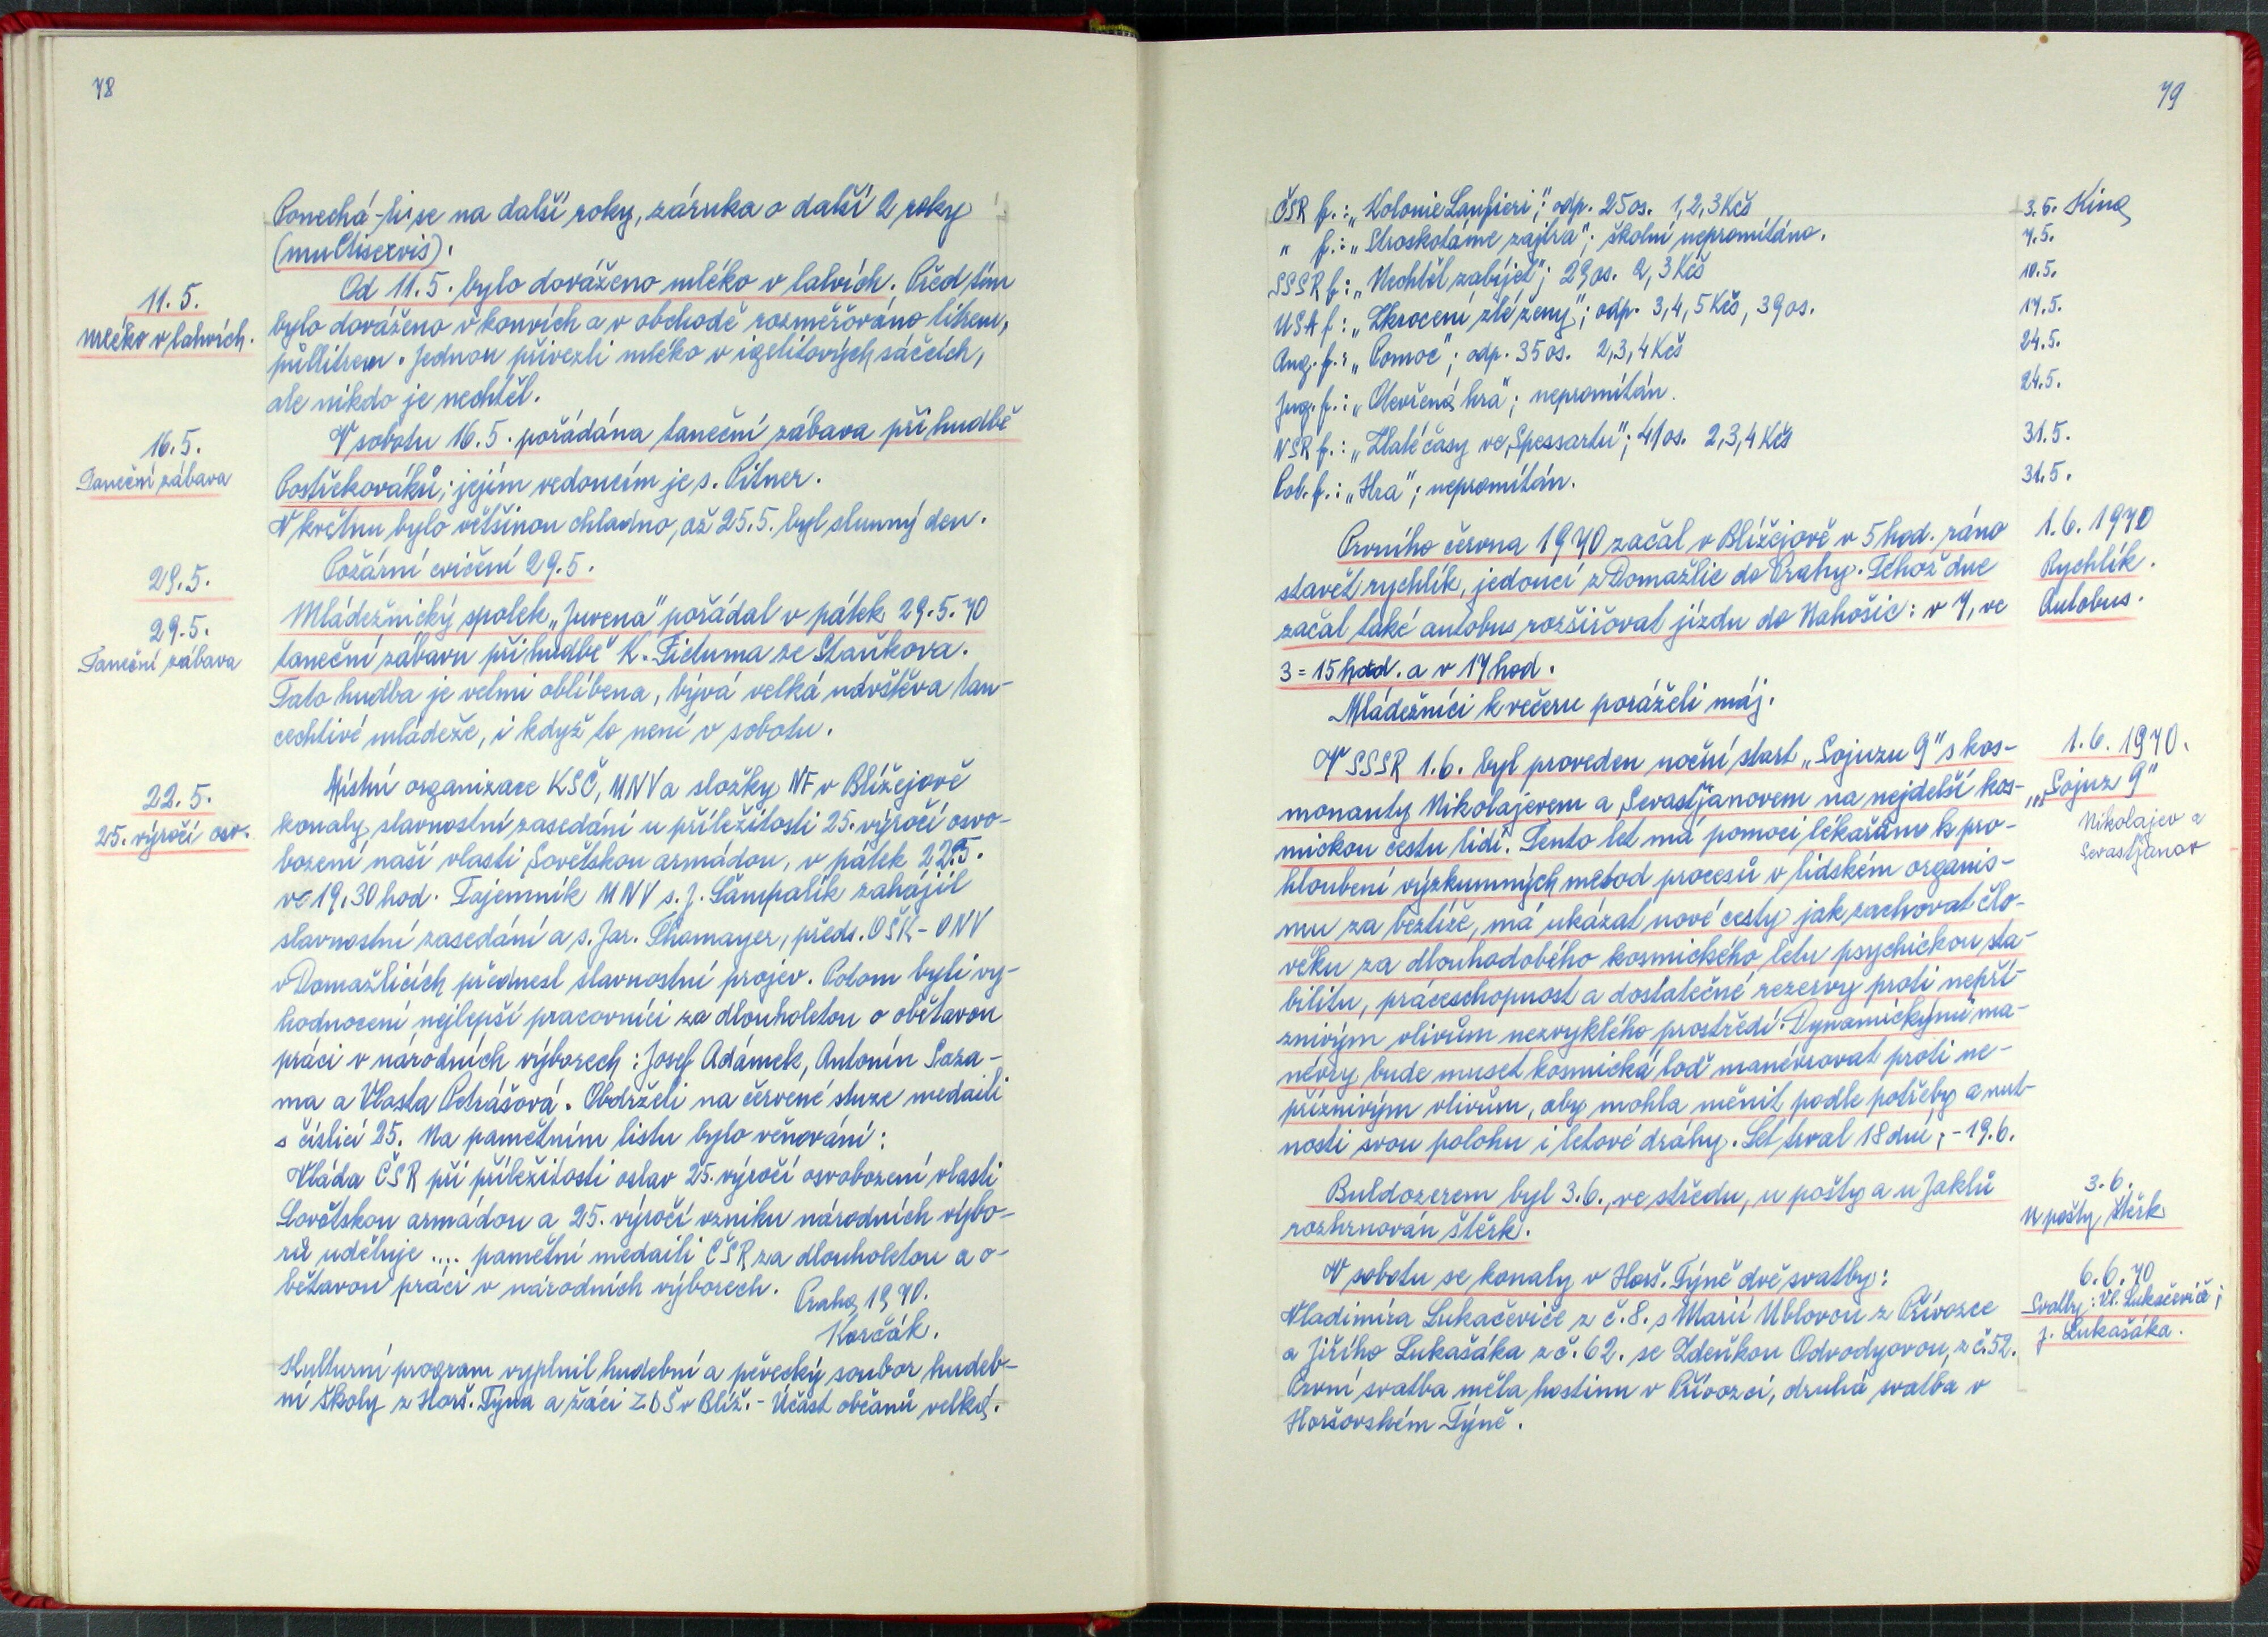 78
Ponechá-li se na další roky, záruka o další 2 roky
(multiservis).
11.5.
Mléko v lahvích.
Od 11.5. bylo dováženo mléko v lahvích. Před tím
bylo dováženo v konvích a v obchodě rozměřováno litrem,
půllitrem. Jednou přivezli mléko v igelitových sáčcích,
ale nikdo je nechtěl.
16.5.
Taneční zábava
V sobotu 16.5. pořádána taneční zábava při hudbě
Postřekováků; jejím vedoucím je s. Pitner.
V květnu bylo většinou chladno, až 25.5. byl slunný den.
29.5.
Požární cvičení 29.5.
29.5.
Taneční zábava
Mládežnický spolek „Juvena" pořádal v pátek 29.5.70
taneční zábavu při hudbě K. Ticluma ze Staňkova.
Tato hudba je velmi oblíbena, bývá velká návštěva tan-
cechtivé mládeže, i když to není v sobotu.
22.5.
25. výročí osv.
Místní organizace KSČ, MNV a složky NF v Blížejově
konaly slavnostní zasedání u příležitosti 25. výročí osvo-
bození naší vlasti Sovětskou armádou, v pátek 22.5.
ve 19,30 hod. Tajemník MNV s. J. Šampalík zahájil
slavnostní zasedání a s. Jar. Thomayer, předs. OŠK - ONV
v Domažlicích přednesl slavnostní projev. Potom byli vy-
hodnoceni nejlepší pracovníci za dlouholetou o obětavou
práci v národních výborech: Josef Adámek, Antonín Saza-
ma a Vlasta Petrášová. Obdrželi na červené stuze medaili
s číslicí 25. Na pamětním listu bylo věnování:
Vláda ČSR při příležitosti oslav 25. výročí osvobození vlasti
Sovětskou armádou a 25. výročí vzniku národních výbo-
rů uděluje .... pamětní medaili ČSR za dlouholetou a o-
bětavou práci v národních výborech. Praha 1970.
Korčák.
Kulturní program vyplnil hudební a pěvecký soubor hudeb-
ní školy z Horš. Týna a žáci ZDŠ v Blíž. - Účast občanů velká.
79
ČSR f.: „Kolonie Lanfieri"; odp. 25 os. 1,2,3 Kčs
3.5. Kino
" f.: „Stroskotáme zajtra"; školní nepromítáno.
7.5.
SSSR f.: „Nechtěl zabíjet"; 29 os. 2,3 Kčs
10.5.
USA f.: „Zkrocení zlé ženy"; odp. 3,4,5 Kčs, 39 os.
17.5.
Ang. f.: „Pomoc"; odp. 35 os. 2,3,4 Kčs
24.5.
Jug. f.: „Otevřená hra"; nepromítán.
24.5.
NSR f.: „Zlaté časy ve Spessartu"; 41 os. 2,3,4 Kčs
31.5.
Pol. f.: „Hra"; nepromítán.
31.5.
1.6.1970
Rychlík.
Autobus.
Prvního června 1970 začal v Blížejově v 5 hod. ráno
stavět rychlík, jedoucí z Domažlic do Prahy. Téhož dne
začal také autobus rozšiřovat jízdu do Nahošic: v 7, ve
3 = 15 hod. a v 17 hod.
Mládežníci k večeru poráželi máj.
1.6.1970.
„Sojuz 9"
Nikolajev a
Sevastjanov
V SSSR 1.6. byl proveden noční start „Sojuzu 9" s kos-
monauty Nikolajevem a Sevastjanovem na nejdelší kos-
mickou cestu lidí. Tento let má pomoci lékařům k pro-
hloubení výzkumných metod procesů v lidském organis-
mu za beztíže, má ukázat nové cesty jak zachovat člo-
věku za dlouhodobého kosmického letu psychickou sta-
bilitu, práceschopnost a dostatečné rezervy proti nepří-
znivým vlivům nezvyklého prostředí. Dynamickými ma-
névry bude muset kosmická loď manévrovat proti ne-
příznivým vlivům, aby mohla měnit podle potřeby a nut-
nosti svou polohu i letové dráhy. Let trval 18 dní, - 19.6.
3.6.
U pošty štěrk
Buldozerem byl 3.6., ve středu, u pošty a u Jaklů
rozhrnován štěrk.
6.6.70
Svatby: Vl. Lukačeviče;
J. Lukašáka.
V sobotu se konaly v Horš. Týně dvě svatby:
Vladimíra Lukačeviče z č. 8. s Marií Ublovou z Přívozce
a Jiřího Lukašáka z č. 62. se Zdeňkou Odvodyovou, z č. 52.
První svatba měla hostinu v Přívozci, druhá svatba v
Horšovském Týně.